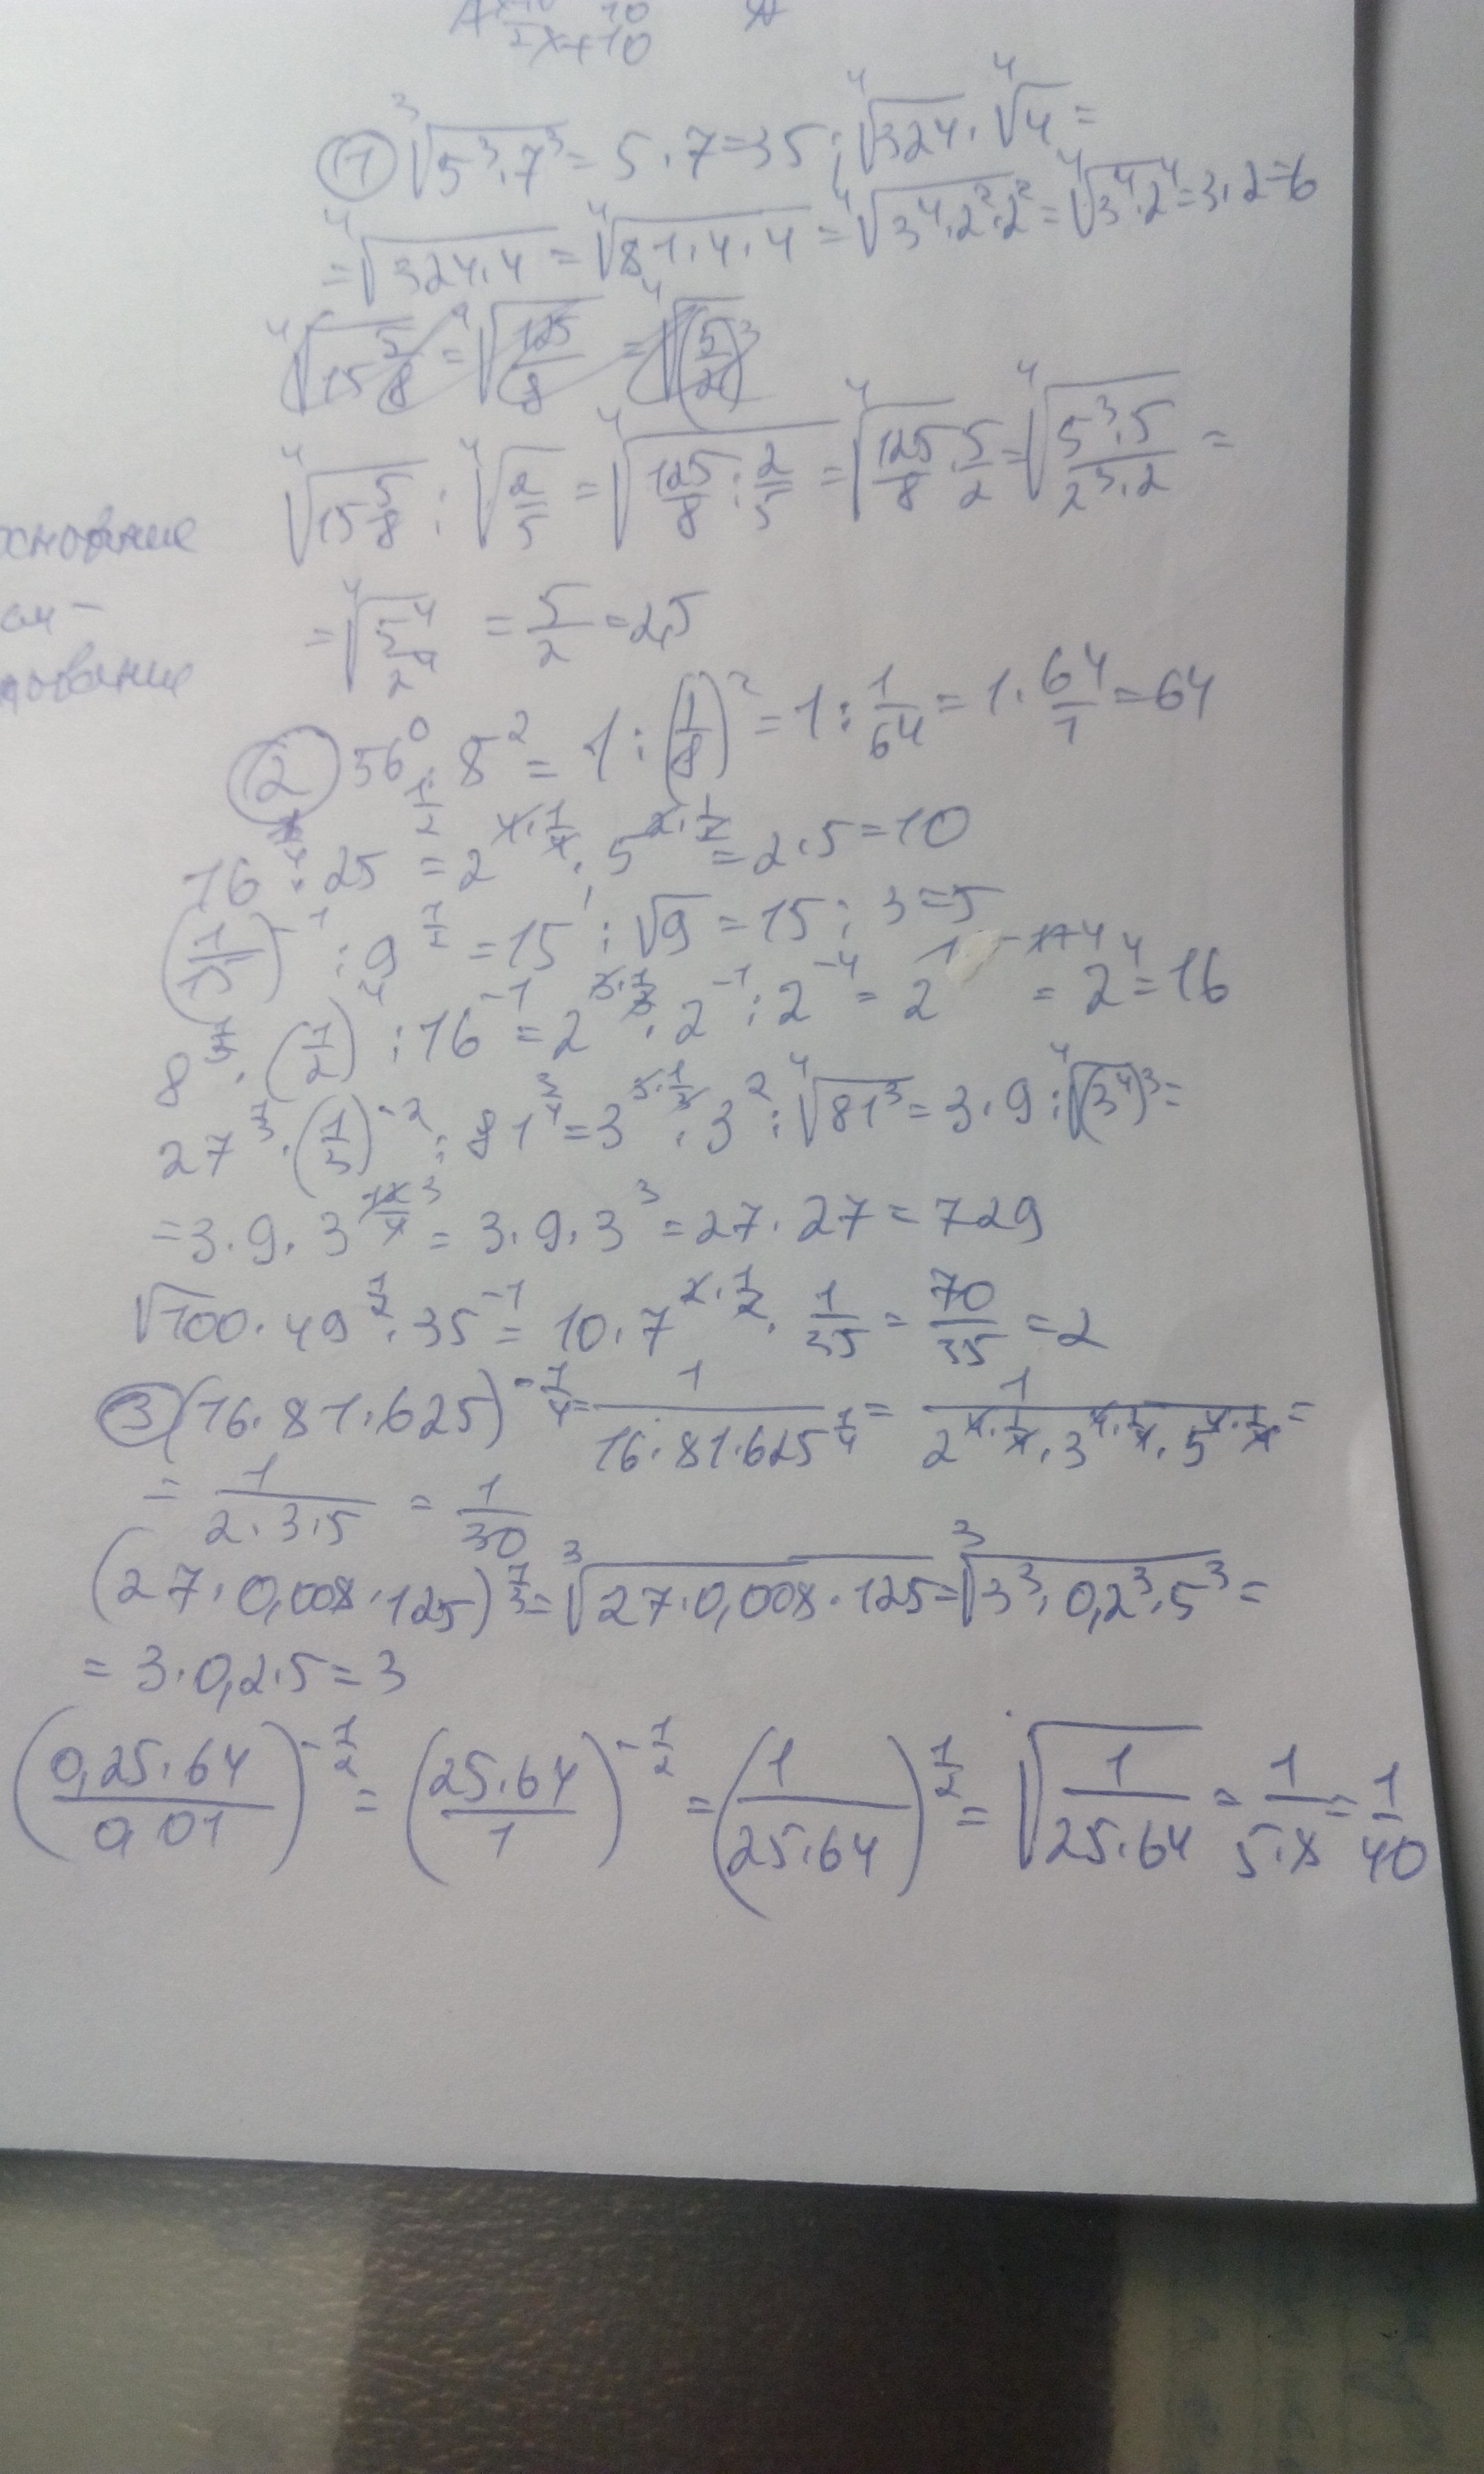 2x+10
① ∛(5³·7³) = 5·7=35; ∜324 · ∜4 =
= ∜(324·4) = ∜(81·4·4) = ∜(3⁴·2²·2²) = ∜(3⁴·2⁴) = 3·2=6
∜(15 5/8) = ∜(125/8) = ∜((5/2)³)
∜(15 5/8) : ∜(2/5) = ∜(125/8 : 2/5) = ∜(125/8 · 5/2) = ∜((5³·5)/(2³·2)) =
= ∜(5⁴/2⁴) = 5/2 = 2,5
② 56⁰ : 8² = 1 : (1/8)² = 1 : 1/64 = 1 · 64/1 = 64
16^(1/4) · 25^(1/2) = 2^(4·1/4) · 5^(2·1/2) = 2·5=10
(1/15)^(-1) : 9^(1/2) = 15¹ : √9 = 15 : 3=5
8^(1/3) · (1/2)⁴ : 16^(-1) = 2^(3·1/3) · 2^(-1) : 2^(-4) = 2^(1-1+4) = 2⁴ = 16
27^(1/3) · (1/3)^(-2) : 81^(3/4) = 3^(3·1/3) · 3² : ∜(81³) = 3·9 : ∜((3⁴)³) =
= 3·9·3^(12/4) ³ = 3·9·3³ = 27·27 = 729
√100 · 49^(1/2) · 35^(-1) = 10·7^(2·1/2) · 1/35 = 70/35 = 2
③ (16·81·625)^(-1/4) = 1/(16·81·625^(1/4)) = 1/(2^(4·1/4) · 3^(4·1/4) · 5^(4·1/4)) =
= 1/(2·3·5) = 1/30
(27·0,008·125)^(1/3) = ∛(27·0,008·125) = ∛(3³·0,2³·5³) =
= 3·0,2·5=3
((0,25·64)/(0,01))^(-1/2) = ((25·64)/1)^(-1/2) = (1/(25·64))^(1/2) = √(1/(25·64)) = 1/(5·8) = 1/40